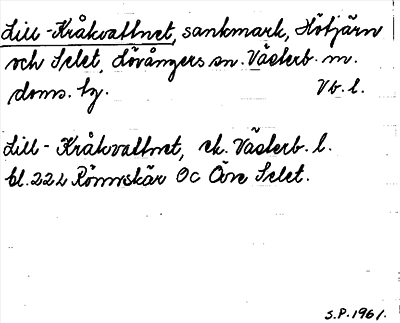 Lill-Kråkvattnet, sankmark, Hötjärn
och Selet, Lövångers sn. Västerb. m.
doms. tg. Vb. l.
Lill-Kråkvattnet, ek. Västerb. l.
bl. 222 Rönnskär Oc Övre Selet.
S.P. 1961.